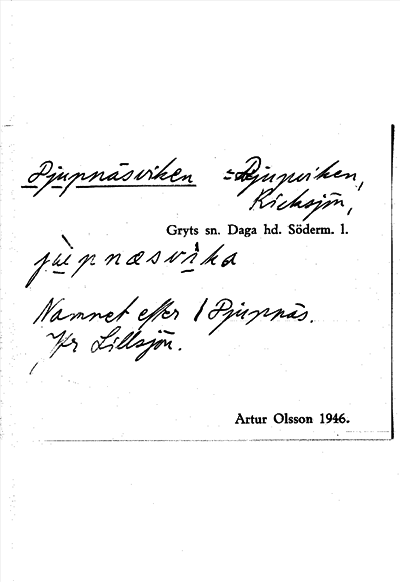 Djupnäsviken = Djupviken,
Kicksjön,
Gryts sn. Daga hd. Söderm. l.
Namnet efter Djupnäs.
Jfr Lillsjön.
Artur Olsson 1946.